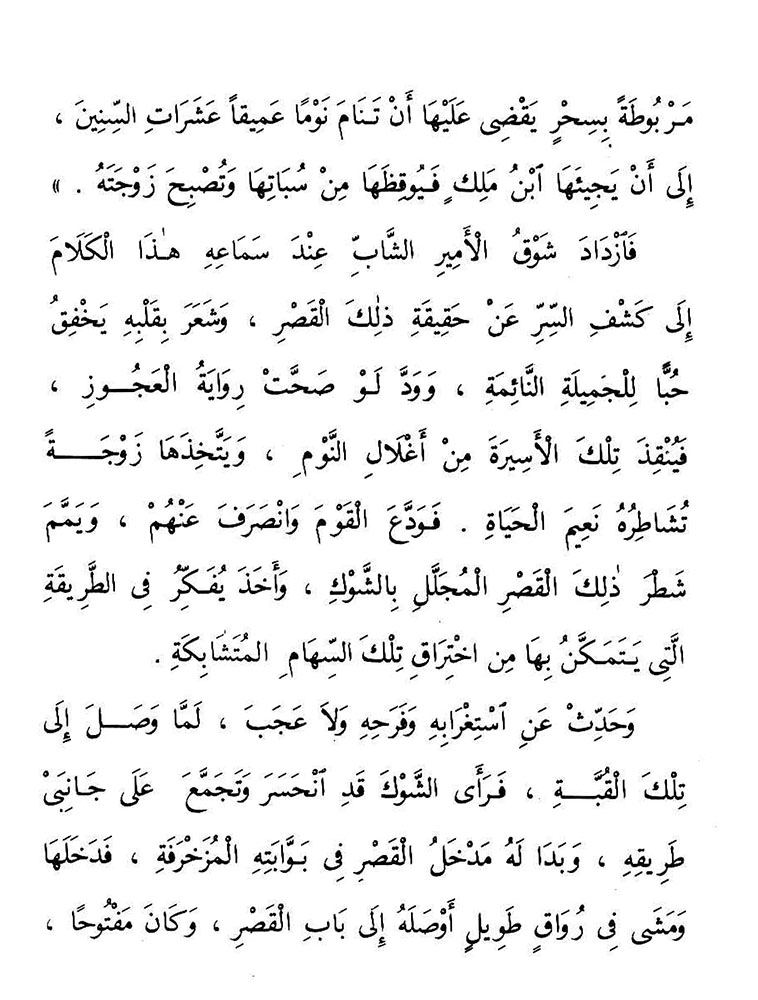 مَرْبُوطَةً بِسِحْرٍ يَقْضِى عَلَيْهَا أَنْ تَنَامَ نَوْمًا عَمِيقاً عَشَرَاتِ السِّنِينَ ،
إِلَى أَنْ يَجِيئَهَا ٱبْنُ مَلِكٍ فَيُوقِظَهَا مِنْ سُبَاتِهَا وَتُصْبِحَ زَوْجَتَهُ . »
فَٱزْدَادَ شَوْقُ الْأَمِيرِ الشَّابِّ عِنْدَ سَمَاعِهِ هٰذَا الْكَلَامَ
إِلَى كَشْفِ السِّرِّ عَنْ حَقِيقَةِ ذٰلِكَ الْقَصْرِ ، وَشَعَرَ بِقَلْبِهِ يَخْفِقُ
حُبًّا لِلْجَمِيلَةِ النَّائِمَةِ ، وَوَدَّ لَوْ صَحَّتْ رِوَايَةُ الْعَجُـــوزِ ،
فَيُنْقِذَ تِلْكَ الْأَسِيرَةَ مِنْ أَغْلَالِ النَّوْمِ ، وَيَتَّخِذَهَا زَوْجَـــــةً
تُشَاطِرُهُ نَعِيمَ الْحَيَاةِ . فَوَدَّعَ الْقَوْمَ وَانْصَرَفَ عَنْهُمْ ، وَيَمَّمَ
شَطْرَ ذٰلِكَ الْقَصْرِ الْمُجَلَّلِ بِالشَّوْكِ ، وَأَخَذَ يُفَكِّرُ فِى الطَّرِيقَةِ
الَّتِى يَتَمَكَّنُ بِهَا مِن اخْتِرَاقِ تِلْكَ السِّهَامِ الْمُتَشَابِكَةِ .
وَحَدِّثْ عَنِ ٱسْتِغْرَابِهِ وَفَرَحِهِ وَلاَ عَجَبَ ، لَمَّا وَصَـــلَ إِلَى
تِلْكَ الْقُبَّـــةِ ، فَرَأَى الشَّوْكَ قَدِ ٱنْحَسَرَ وَتَجَمَّعَ عَلَى جَانِبَىْ
طَرِيقِهِ ، وَبَدَا لَهُ مَدْخَلُ الْقَصْرِ فِى بَوَّابَتِهِ الْمُزَخْرَفَةِ ، فَدَخَلَهَا
وَمَشَى فِى رُوَاقٍ طَوِيلٍ أَوْصَلَهُ إِلَى بَابِ الْقَصْرِ ، وَكَانَ مَفْتُوحًا ،